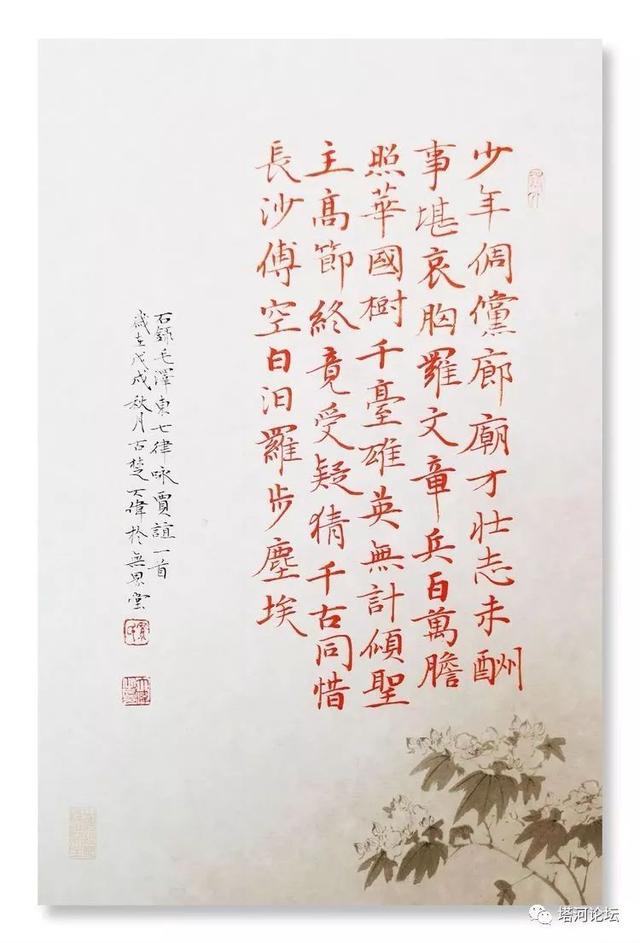 少年倜儻廊廟才壯志未酬
事堪哀胸羅文章兵百萬膽
照華國樹千臺雄英無計傾聖
主高節終竟受疑猜千古同惜
長沙傅空白汨羅步塵埃
右錄毛澤東七律咏賈誼一首
歲在戊戌秋月古楚偉於無堂
塔河论坛